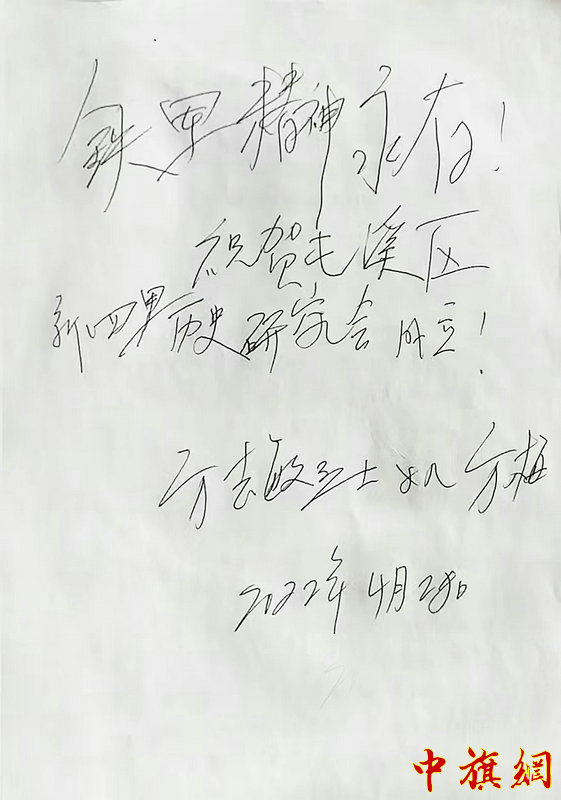 铁军精神永存!
祝贺屯溪区
新四军历史研究会成立!
方志敏烈士女儿 方梅
2022年4月28日
中旗網